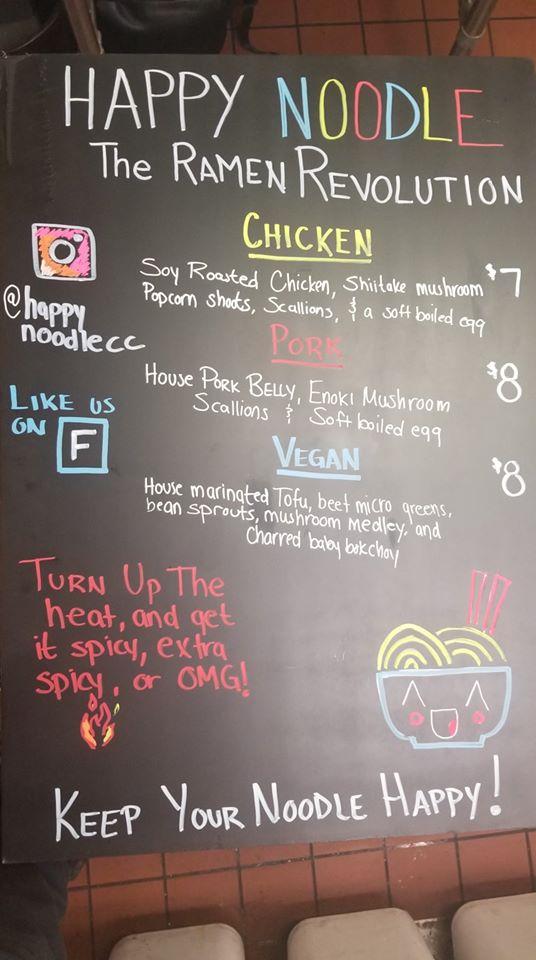 HAPPY NOODLE
The RAMEN REVOLUTION
CHICKEN
Soy Roasted Chicken, Shiitake mushroom $7
Popcorn shoots, Scallions, & a soft boiled egg
@happy
noodlecc
PORK
House PORK BELLY, ENOKI MUSHROOM $8
Scallions & Soft boiled egg
LIKE US
ON F
VEGAN
House marinated Tofu, beet micro greens, $8
bean sprouts, mushroom medley, and
Charred baby bokchoy
TURN UP THE
heat, and get
it spicy, extra
spicy, or OMG!
KEEP YOUR NOODLE HAPPY!